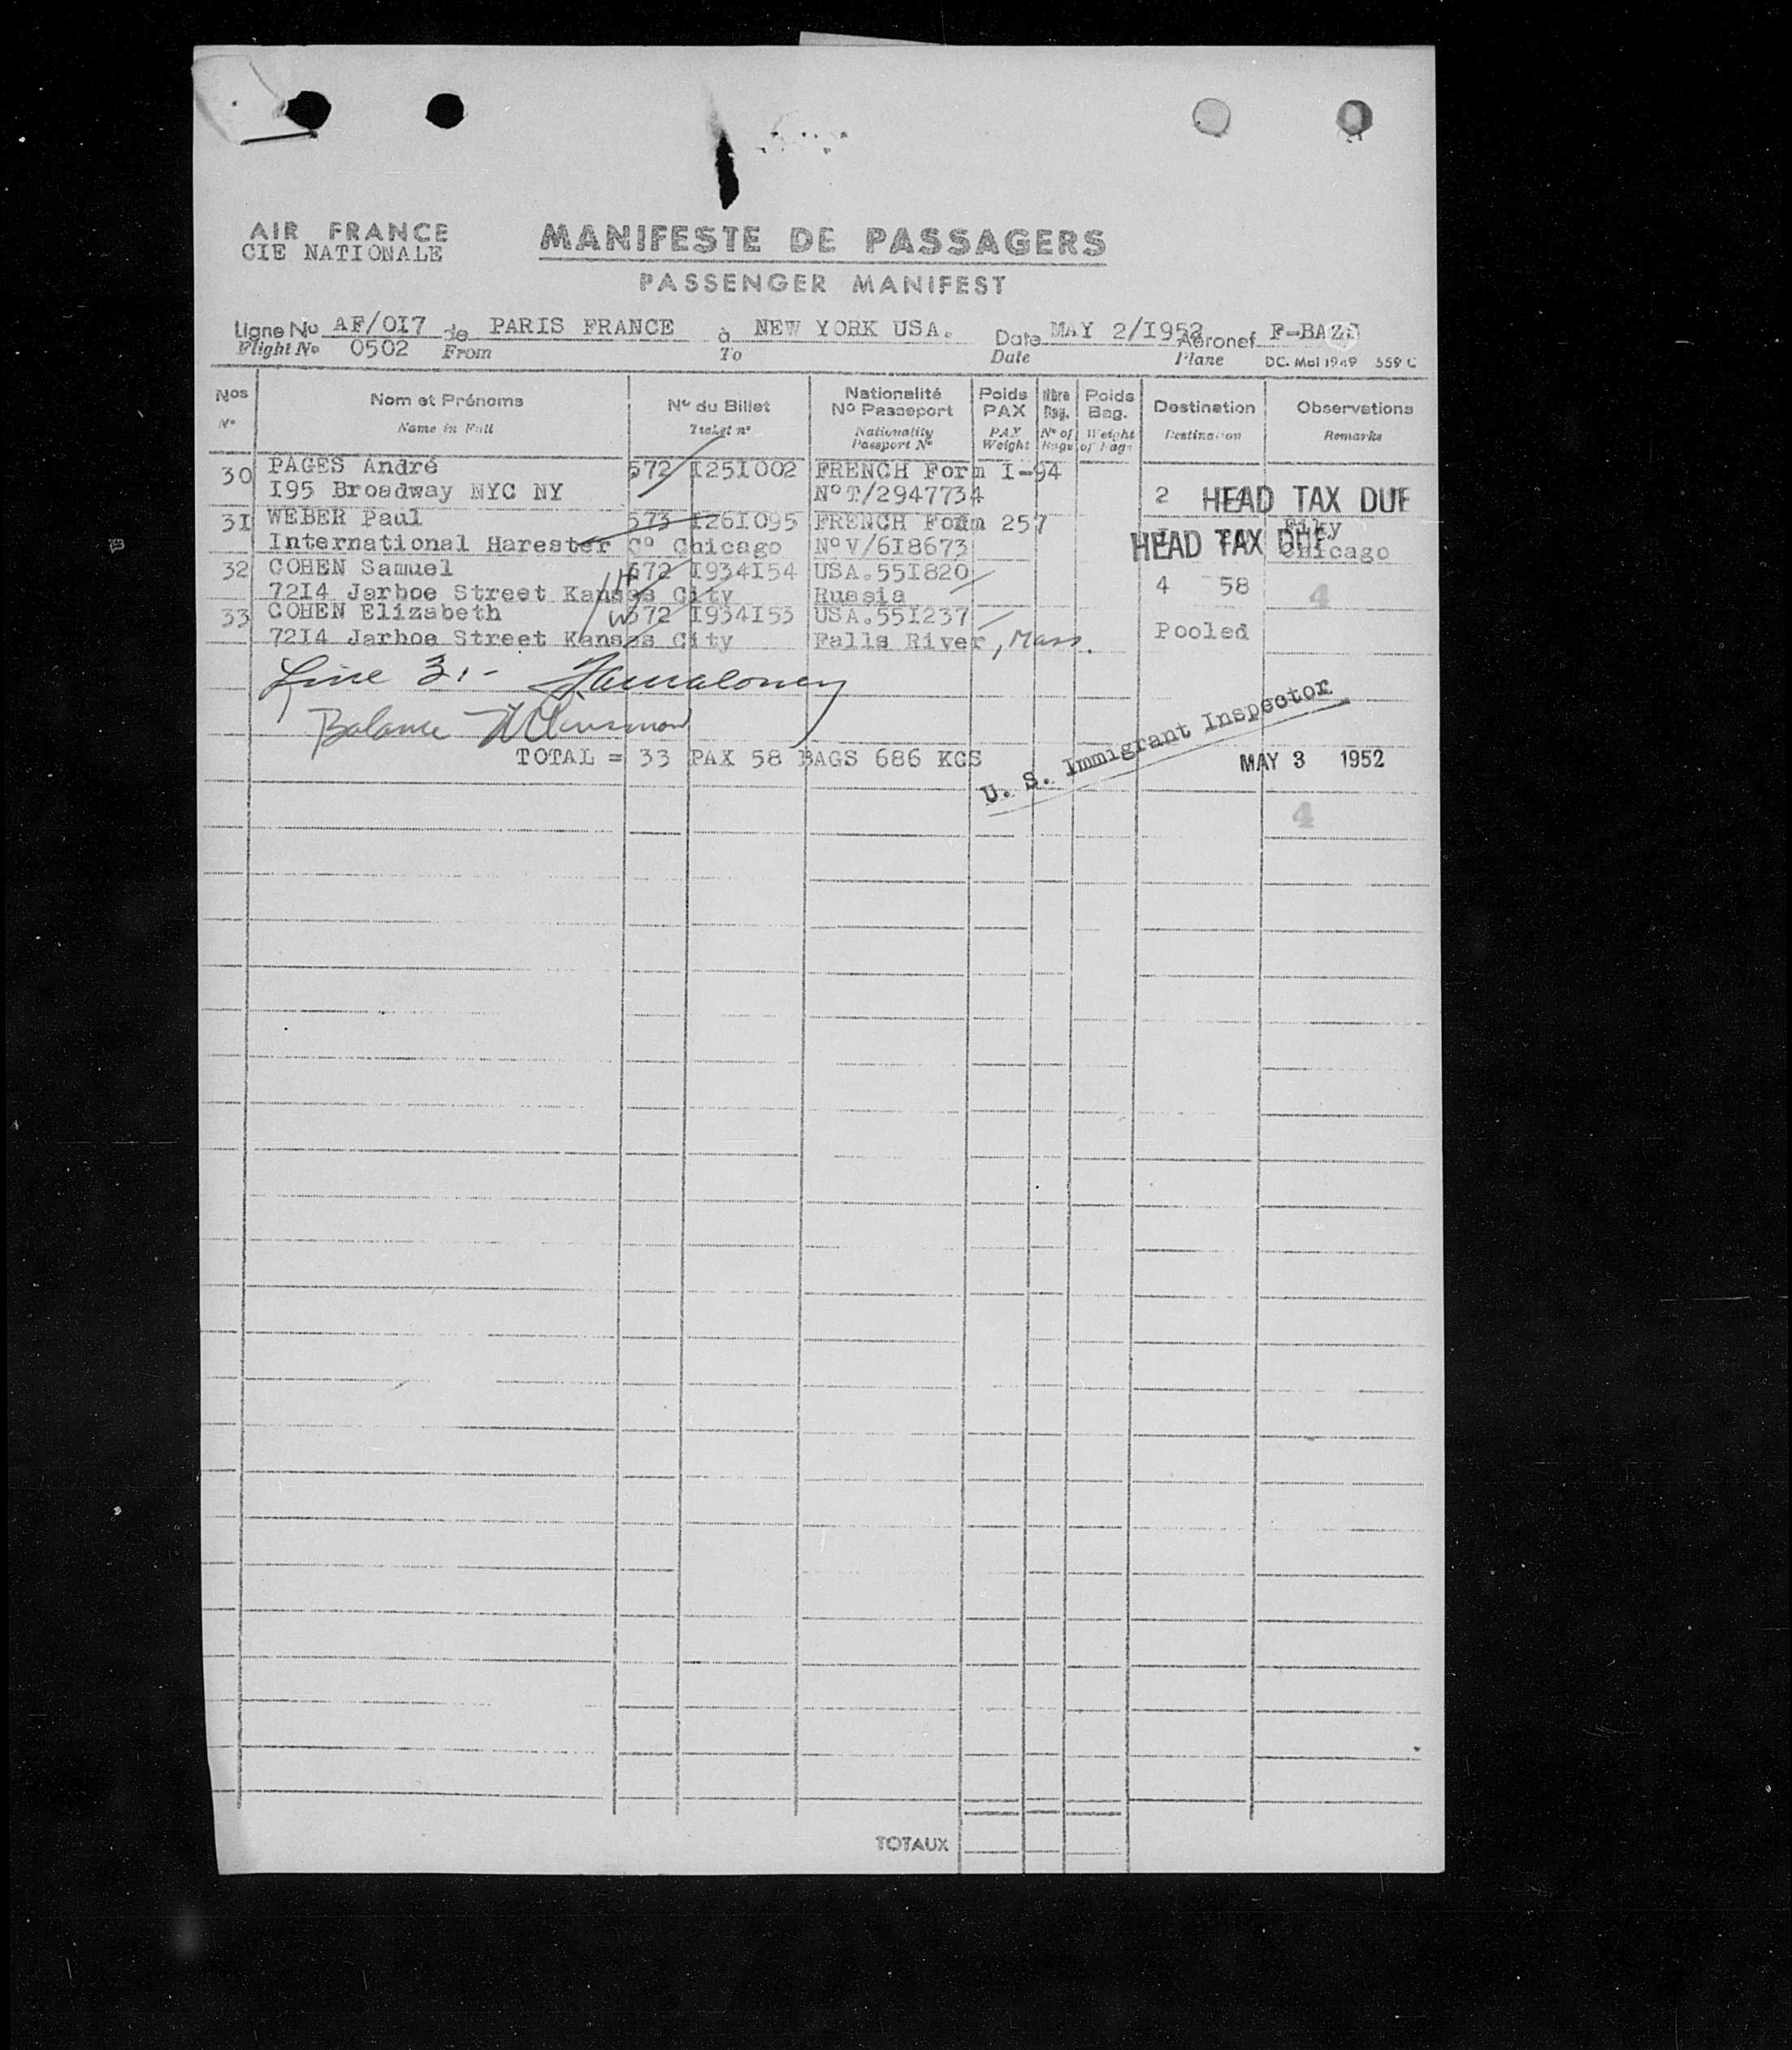 AIR FRANCE
CIE NATIONALE
MANIFESTE DE PASSAGERS
PASSENGER MANIFEST
Ligne No AF/OI7 de PARIS FRANCE à NEW YORK USA. Date MAY 2/I952 Aéronef F-BAZS
Flight No 0502 From To Date Plane DC. Mai 1949 559 C
Nos Nom et Prénoms No du Billet Nationalité No Passeport Poids PAX Nbre Bag. Poids Bag. Destination Observations
No Name in Full Ticket no Nationality Passport No PAX Weight No of Bags Weight of Bags Destination Remarks
30 PAGES André 572 I25I002 FRENCH Form I-94
I95 Broadway NYC NY No T/2947734 2 HEAD TAX DUE
3I WEBER Paul 573 I26I095 FRENCH Form 257
International Harester Co Chicago No V/6I8673 HEAD TAX DUE Chicago
32 COHEN Samuel 572 I934I54 USA.55I820
72I4 Jarboe Street Kansas City Russia 4 58 4
33 COHEN Elizabeth 572 I934I53 USA.55I237
72I4 Jarboe Street Kansas City Falls River, Mass. Pooled
Line 31-
Balance
U. S. Immigrant Inspector
TOTAL = 33 PAX 58 BAGS 686 KGS
MAY 3 1952
4
TOTAUX